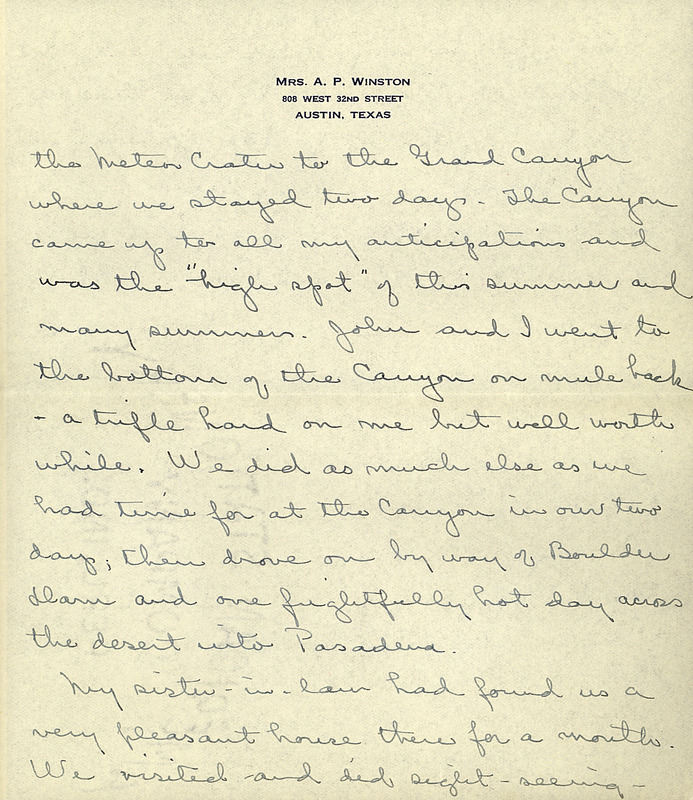 MRS. A. P. WINSTON
808 WEST 32ND STREET
AUSTIN, TEXAS
the Meteor Crater to the Grand Canyon
where we stayed two days. The Canyon
came up to all my anticipations and
was the "high spot" of this summer and
many summers. John and I went to
the bottom of the Canyon on mule back
- a trifle hard on me but well worth
while. We did as much else as we
had time for at the Canyon in our two
days; then drove on by way of Boulder
Dam and one frightfully hot day across
the desert into Pasadena.
My sister-in-law had found us a
very pleasant house there for a month.
We visited and did sight-seeing-